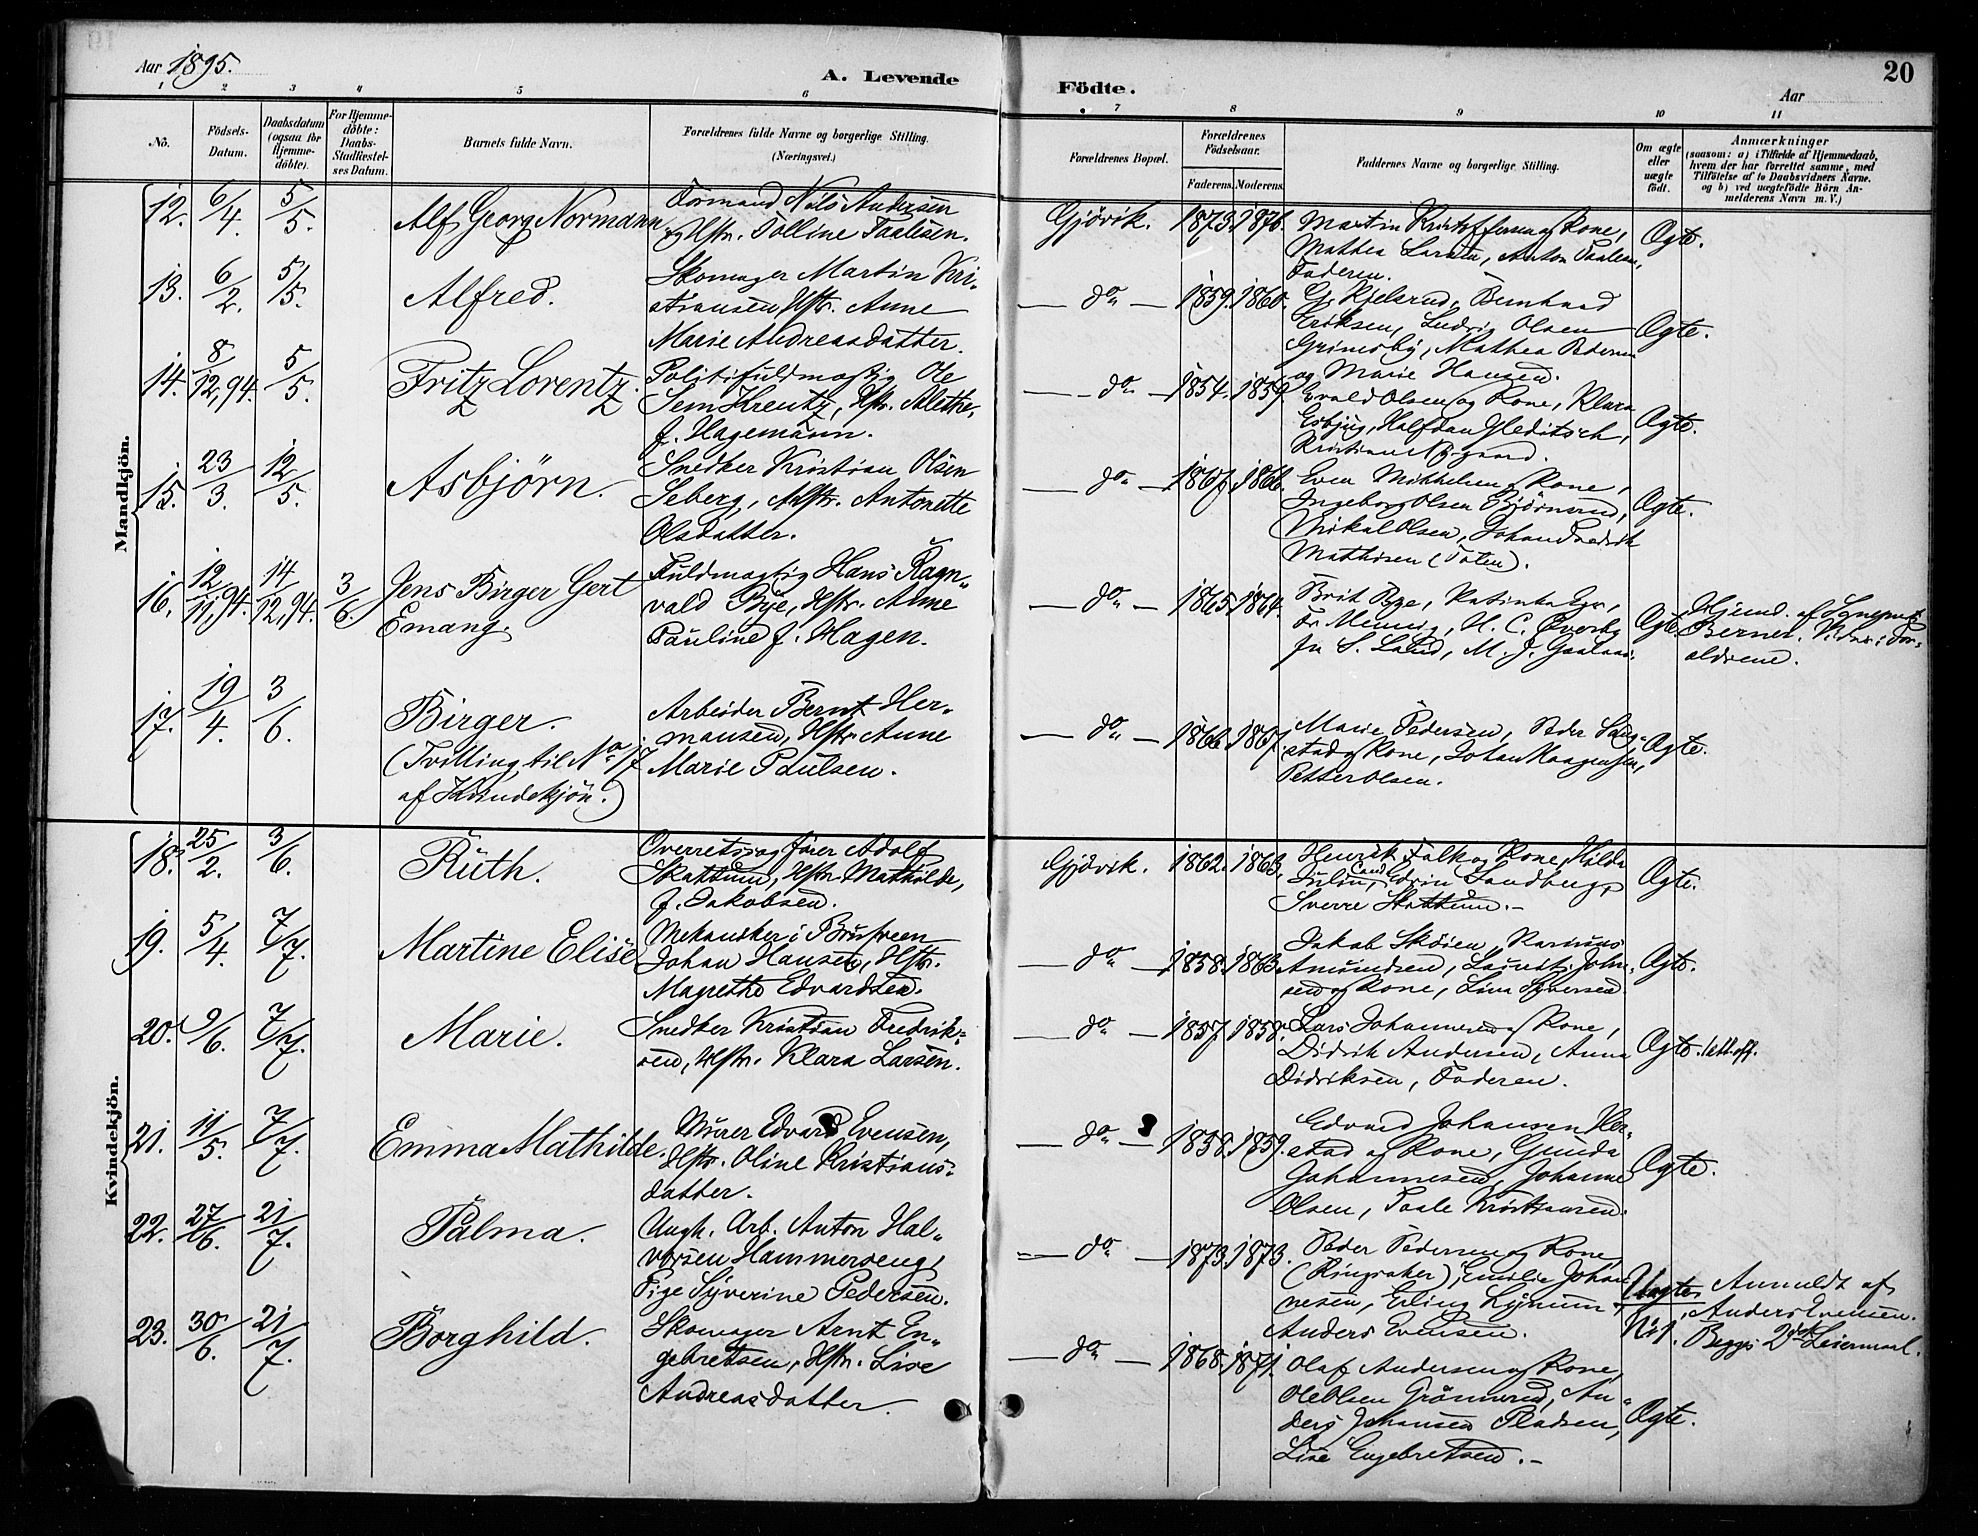 Aar 1895.
A. Levende
Födte.
Aar
20
1 2 3 4 5 6 7 8 9 10 11
No.
Födsels-
Datum.
Daabsdatum
(ogsaa for
Hjemme-
döbte).
For Hjemme-
döbte:
Daabs-
Stadfæstel-
ses Datum.
Barnets fulde Navn.
Forældrenes fulde Navne og borgerlige Stilling.
(Næringsvei.)
Forældrenes Bopæl.
Forældrenes
Födselsaar.
Faderens. Moderens.
Faddernes Navne og borgerlige Stilling.
Om ægte
eller
uægte
födt.
Anmærkninger
(saasom: a) i Tilfælde af Hjemmedaab,
hvem der har forrettet samme, med
Tilföielse af to Daabsvidners Navne.
og b) ved uægtefödte Börn An-
melderens Navn m. V.)
Mandkjön.
12. 6/4. 5/5. Alf Georg Normann
Formand Nils Andersen
og Hstr. Tolline Paulsen.
Gjövik. 1873. 1876.
Martin Kristoffersen og Kone,
Mathea Larsen, Anton Paulsen,
Faderen.
Ægte.
13. 6/2. 5/5. Alfred.
Skomager Martin Kri-
stiansen, Hstr. Anne
Marie Andreasdatter.
do 1859. 1860.
Kjelsrud, Bernhard
Eriksen, Ludvig Olsen
Grimsby, Mathea Pedersen
og Marie Hansen.
Ægte.
14. 8/12,94. 5/5. Fritz Lorentz.
Politifuldmægtig Ole
Sem Krentz, Hstr. Alethe,
f. Hagemann.
do 1854. 1859.
Evald Olsen og Kone, Klara
Esbjug, Halfdan Gleditsch,
Ægte.
15. 23/3. 12/5. Asbjörn.
Snedker Kristian Olsen
Seberg, Hstr. Antonette
Olsdatter.
do 1867. 1866.
Even Mikkelsen, Kone,
Ingeborg Olsen Björnerud,
Mikal Olsen, Johan Fredrik
Mathisen (Toten).
Ægte.
16. 12/11,94. 14/12,94. 3/6. Jens Birger Gert
Emang.
Fuldmægtig Hans Ragn-
vald Bye, Hstr. Anne
Pauline f. Hagen.
do 1865. 1864.
Brit Bye, Katinka
Fr. Mennig, H. C. Överby
S. Lund, M. J.
Ægte.
Hjemd. af Sognepræst
Berner. Vidner: For-
ældrene.
17. 19/4. 3/6. Birger.
(Tvilling til No 17
af Kvindekjön.)
Arbeider Bernt Her-
mansen, Hstr. Anne
Marie Paulsen.
do 1866. 1867.
Marie Pedersen, Peder
stad og Kone, Johan Haagensen,
Petter Olsen.
Ægte.
Kvindekjön.
18. 25/2. 3/6. Ruth.
Overretssagförer Adolf
Skattum, Hstr. Mathilde,
f. Jakobsen.
Gjövik. 1862. 1863.
Henrik Falk og Kone, Hilda
Julin, Cand. Edvin Sandberg,
Sverre Skattum.
Ægte.
19. 5/4. 7/7. Martine Elise
Mekaniker i Brusveen
Johan Hansen, Hstr.
Magrethe Edvardsen.
do 1858. 1863.
Jakob Sköien, Rasmus
Amundsen, Lauritz John-
sen og Kone, Lina Syversen.
Ægte.
20. 9/6. 7/7. Marie.
Snedker Kristian Fredrik-
sen, Hstr. Klara Larsen.
do 1857. 1858.
Lars Johannesen og Kone,
Didrik Andersen, Anna
Didriksen, Faderen.
Ægte. Att. off.
21. 11/5. 7/7. Emma Mathilde.
Murer Edvard Evensen,
Hstr. Oline Kristians-
datter.
do 1858. 1859.
Edvard Johansen Her-
stad og Kone, Gunda
Johannesen, Johanne
Olsen, Paale Kristiansen.
Ægte.
22. 27/6. 21/7. Palma.
Ungk. Arb. Anton Hal-
vorsen Hammerseng,
Pige Syverine Pedersen.
do 1873. 1873.
Peder Pedersen og Kone
(Ringsaker), Emilie Johan-
nesen, Erling Lynum,
Anders Evensen.
Uægte. Anmeldt af
Anders Evensen.
Begges 2det Leiermaal.
23. 30/6. 21/7. Borghild.
Skomager Arnt En-
gebretsen, Hstr. Lise
Andreasdatter.
do 1868. 1871.
Olaf Andersen og Kone,
Ole Olsen Grönnerud, An-
ders Johansen Pladsen,
Lise Engebretsen.
Ægte.